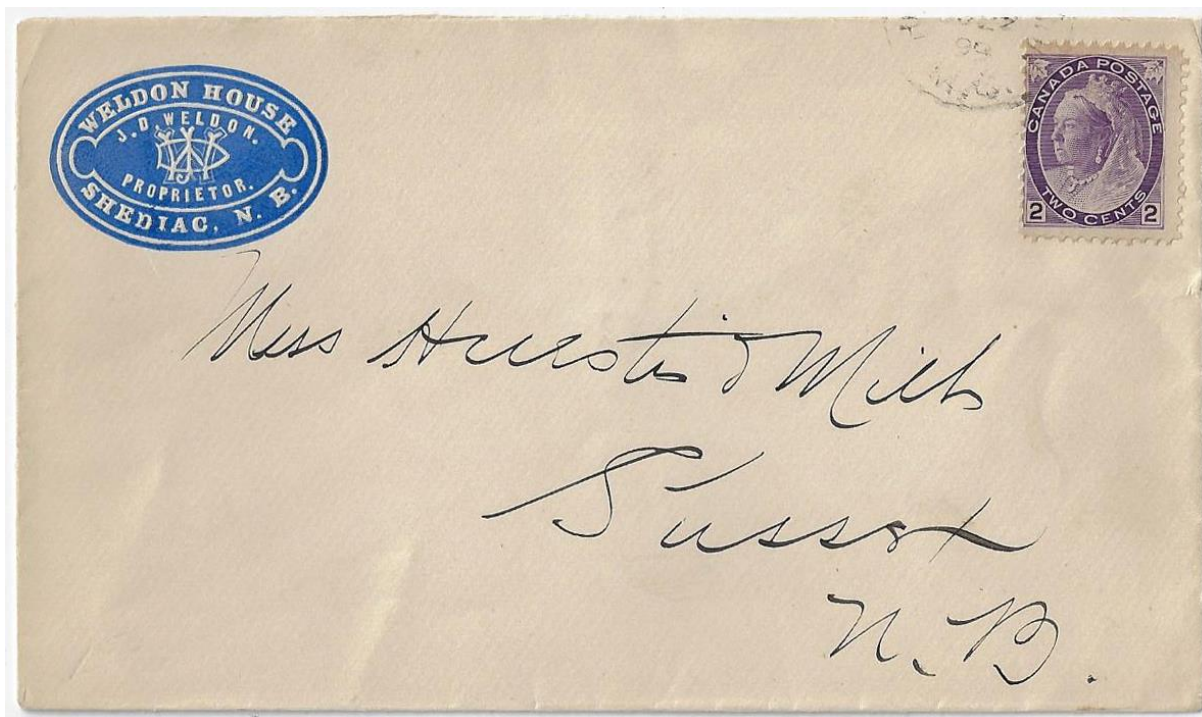 WELDON HOUSE
J. D. WELDON.
PROPRIETOR.
SHEDIAC, N. B.
99
CANADA POSTAGE
2 TWO CENTS 2
Miss Mills
Sussex
N.B.